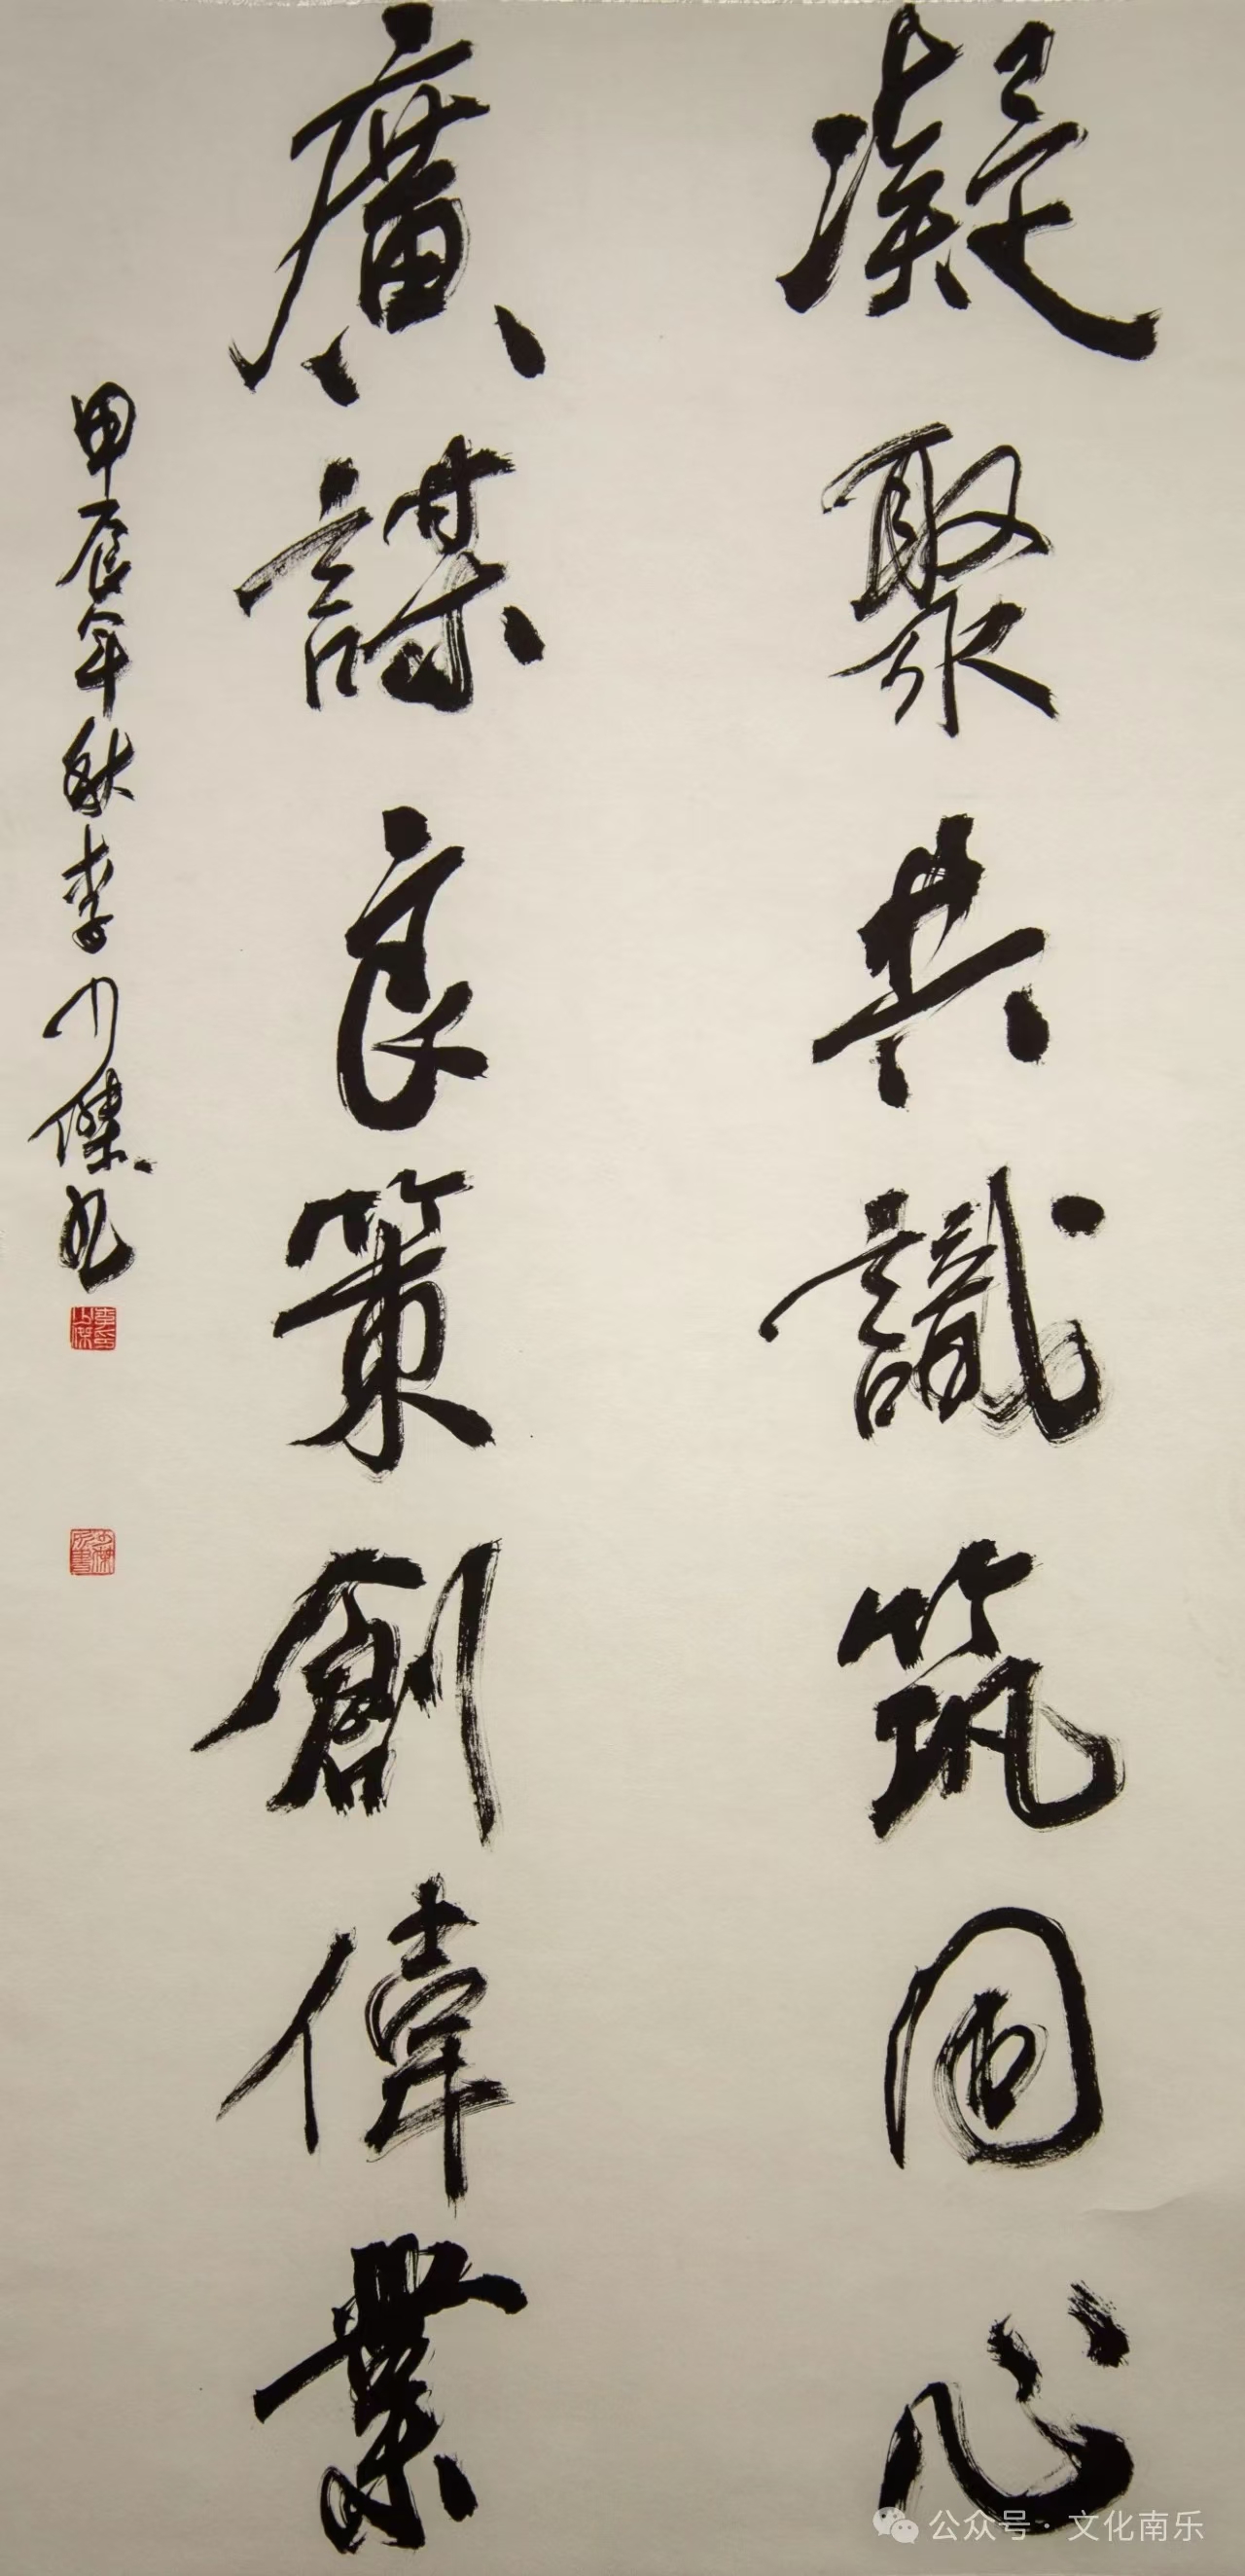 凝聚共識筑同心
廣謀良策創偉業
甲辰年秋李傑书
公众号·文化南乐